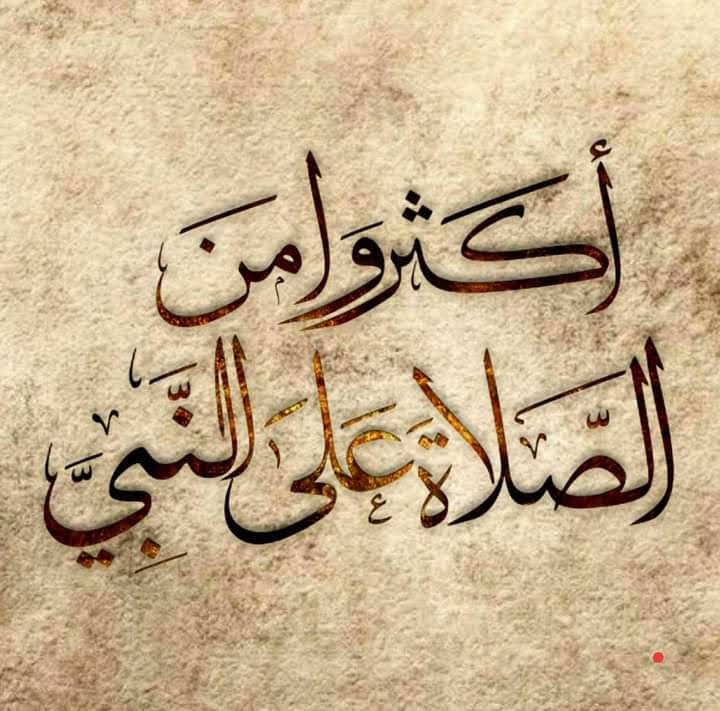 أكثروا من
الصَّلاة على النَّبيِّ